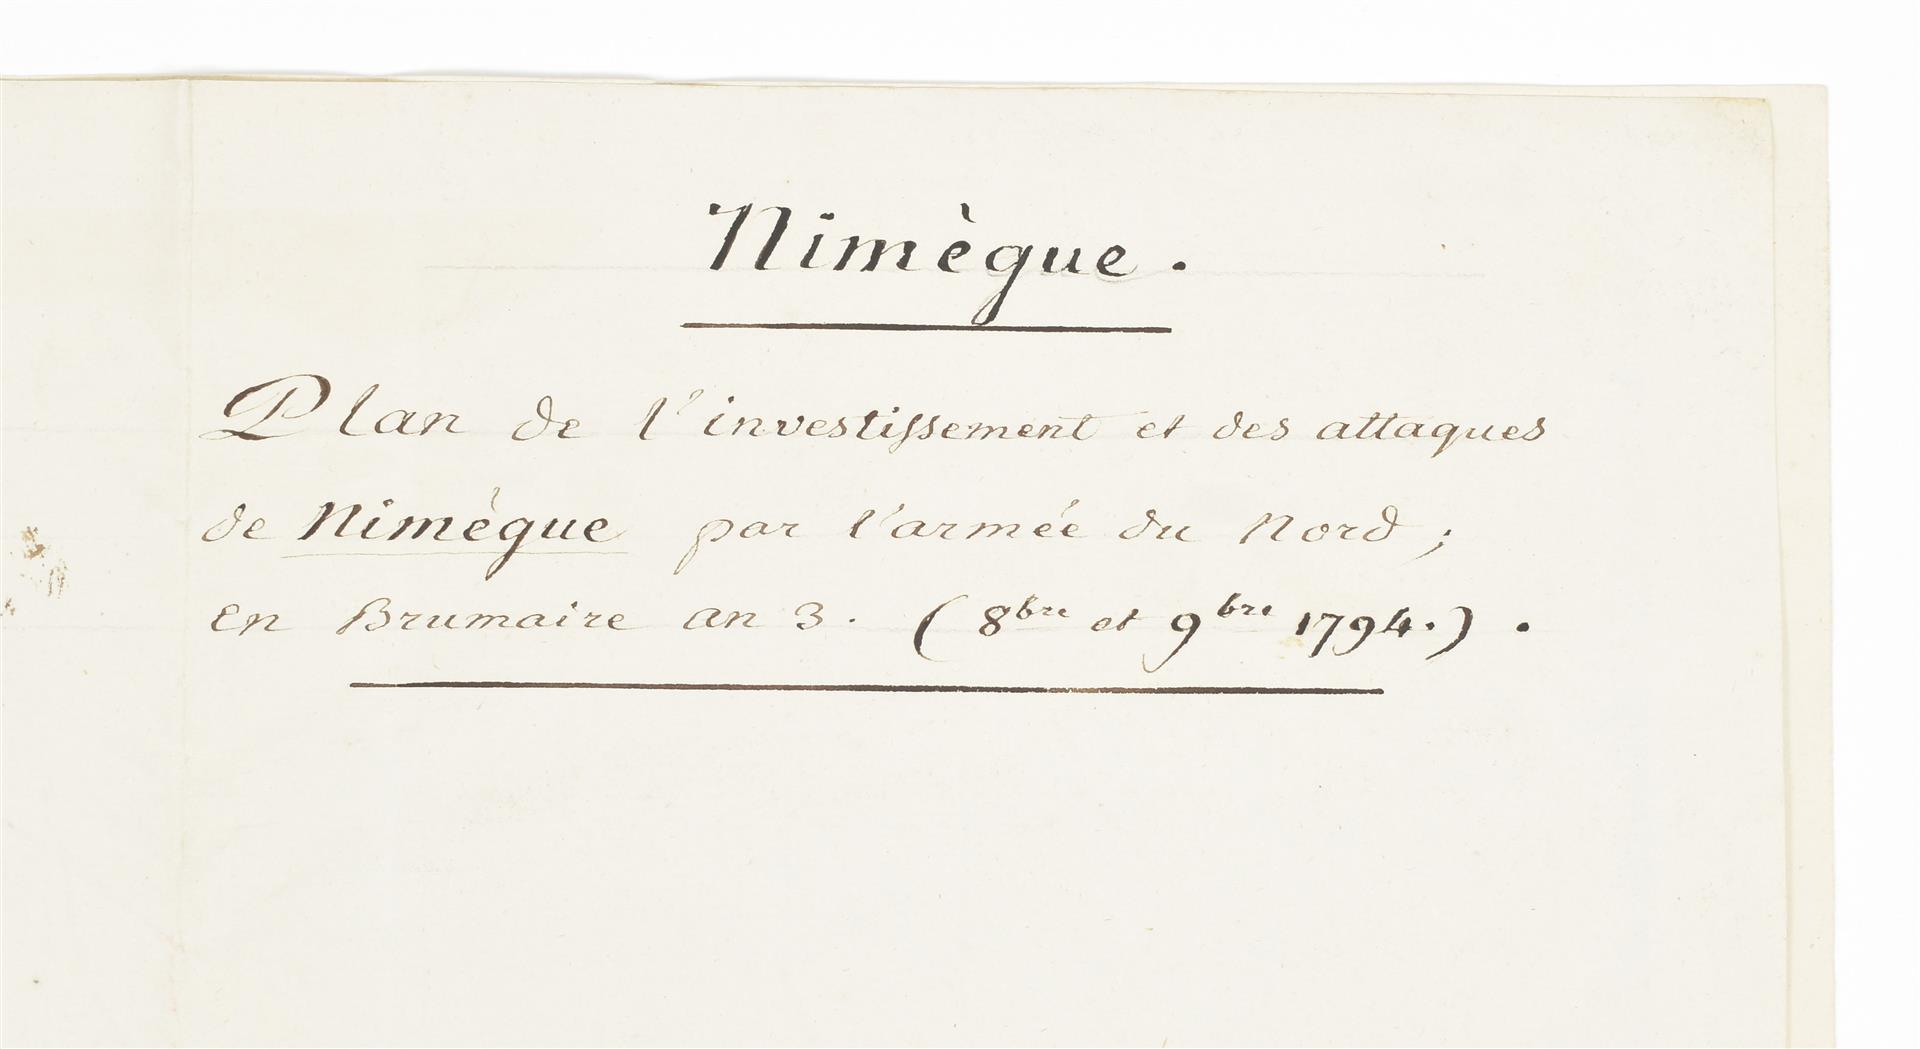 Nimègue.
Plan de l'investissement et des attaques
de Nimègue par l'armée du Nord;
en Brumaire an 3. (8bre et 9bre 1794.).